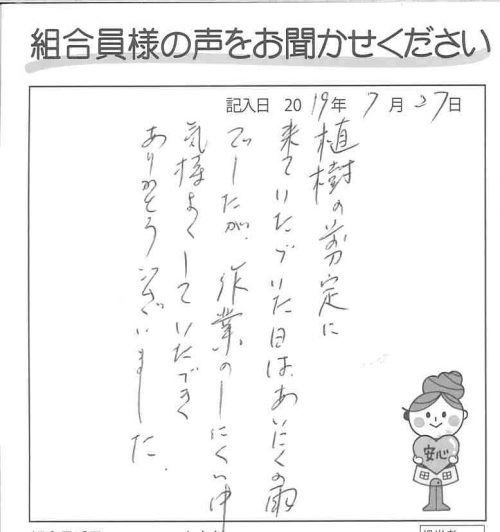 組合員様の声をお聞かせください
記入日 2019年7月27日
植樹の剪定に
来ていたづいた日はあいにくの雨
でしたが、作業のしにくい中
気持よくしていただき
ありがとうございました。
安心